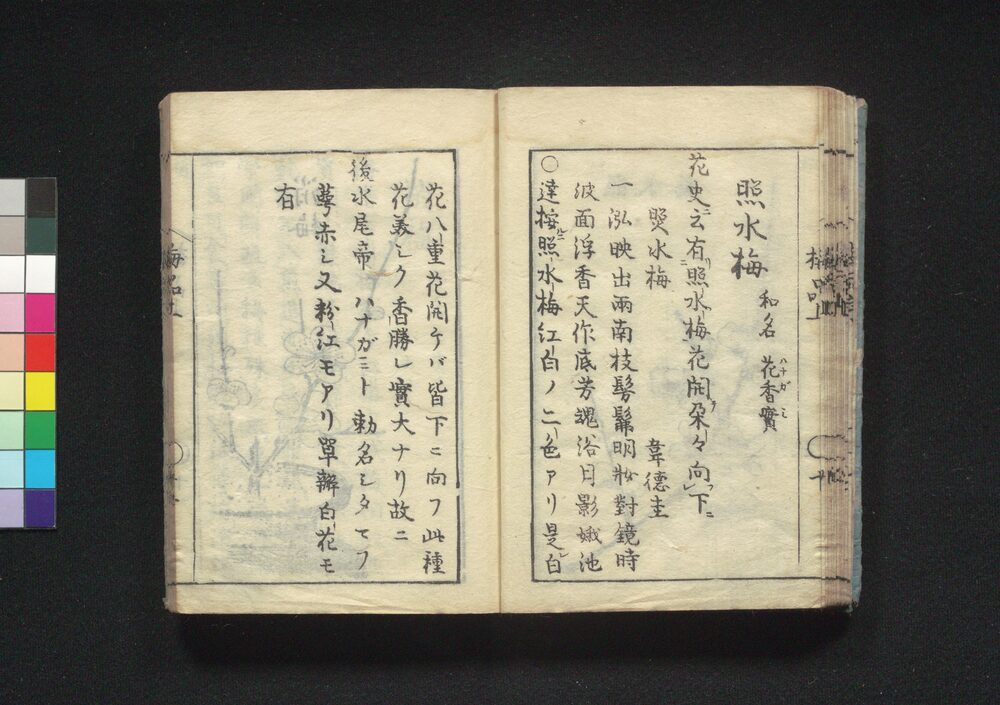 照水梅 和名 花香實
ハナガミ
花史ニ云有リ照水梅花開朶々向下ニ
㷼水梅 韋德圭
一泓映出兩南枝髣髴明妝對鏡時
波面浮香天作底芳魂浴月影娥池
〇達按ルニ照水梅紅白ノ二色アリ是レ白
花八重花開ケバ皆下ニ向フ此種
花美シク香勝レ實大ナリ故ニ
後水尾帝ハナガミト勅名シタマフ
萼赤シ又粉紅モアリ單瓣白花モ
有
梅品上